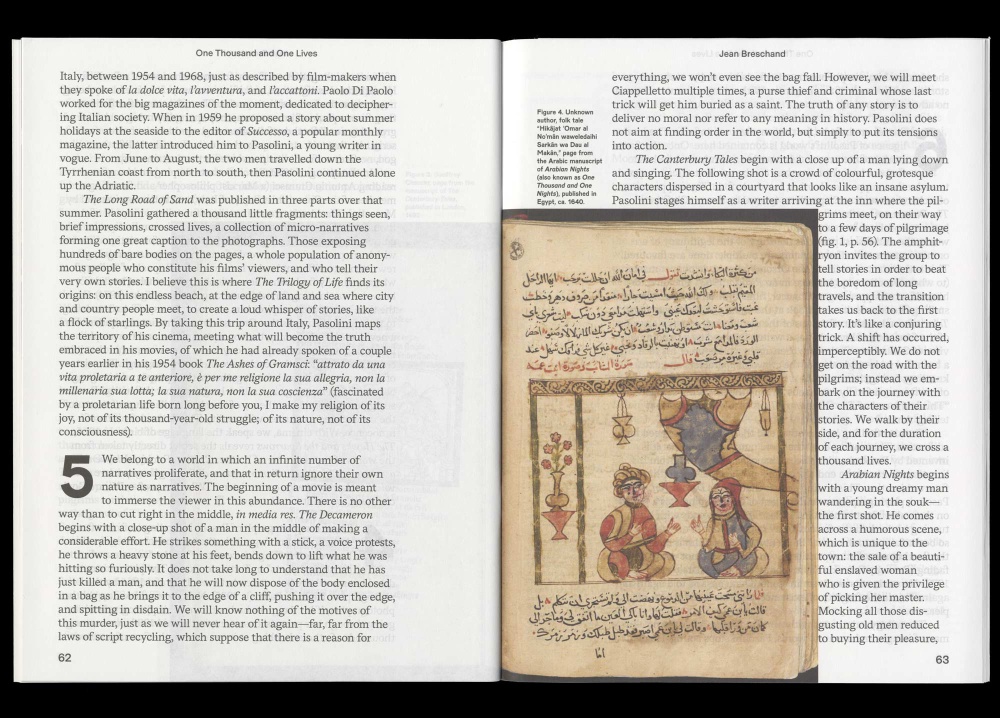 One Thousand and One Lives
Italy, between 1954 and 1968, just as described by film-makers when
they spoke of la dolce vita, l'avventura, and l'accattoni. Paolo Di Paolo
worked for the big magazines of the moment, dedicated to decipher-
ing Italian society. When in 1959 he proposed a story about summer
holidays at the seaside to the editor of Successo, a popular monthly
magazine, the latter introduced him to Pasolini, a young writer in
vogue. From June to August, the two men travelled down the
Tyrrhenian coast from north to south, then Pasolini continued alone
up the Adriatic.
The Long Road of Sand was published in three parts over that
summer. Pasolini gathered a thousand little fragments: things seen,
brief impressions, crossed lives, a collection of micro-narratives
forming one great caption to the photographs. Those exposing
hundreds of bare bodies on the pages, a whole population of anony-
mous people who constitute his films' viewers, and who tell their
very own stories. I believe this is where The Trilogy of Life finds its
origins: on this endless beach, at the edge of land and sea where city
and country people meet, to create a loud whisper of stories, like
a flock of starlings. By taking this trip around Italy, Pasolini maps
the territory of his cinema, meeting what will become the truth
embraced in his movies, of which he had already spoken of a couple
years earlier in his 1954 book The Ashes of Gramsci: "attrato da una
vita proletaria a te anteriore, è per me religione la sua allegria, non la
millenaria sua lotta; la sua natura, non la sua coscienza" (fascinated
by a proletarian life born long before you, I make my religion of its
joy, not of its thousand-year-old struggle; of its nature, not of its
consciousness).
5
We belong to a world in which an infinite number of
narratives proliferate, and that in return ignore their own
nature as narratives. The beginning of a movie is meant
to immerse the viewer in this abundance. There is no other
way than to cut right in the middle, in media res. The Decameron
begins with a close-up shot of a man in the middle of making a
considerable effort. He strikes something with a stick, a voice protests,
he throws a heavy stone at his feet, bends down to lift what he was
hitting so furiously. It does not take long to understand that he has
just killed a man, and that he will now dispose of the body enclosed
in a bag as he brings it to the edge of a cliff, pushing it over the edge,
and spitting in disdain. We will know nothing of the motives of
this murder, just as we will never hear of it again—far, far from the
laws of script recycling, which suppose that there is a reason for
62
Jean Breschand
Figure 4. Unknown
author, folk tale
"Hikâjat 'Omar al
No'mân waweledaihi
Sarkân wa Dau al
Makân," page from
the Arabic manuscript
of Arabian Nights
(also known as One
Thousand and One
Nights), published in
Egypt, ca. 1640.
everything, we won't even see the bag fall. However, we will meet
Ciappelletto multiple times, a purse thief and criminal whose last
trick will get him buried as a saint. The truth of any story is to
deliver no moral nor refer to any meaning in history. Pasolini does
not aim at finding order in the world, but simply to put its tensions
into action.
The Canterbury Tales begin with a close up of a man lying down
and singing. The following shot is a crowd of colourful, grotesque
characters dispersed in a courtyard that looks like an insane asylum.
Pasolini stages himself as a writer arriving at the inn where the pil-
grims meet, on their way
to a few days of pilgrimage
(fig. 1, p. 56). The amphit-
ryon invites the group to
tell stories in order to beat
the boredom of long
travels, and the transition
takes us back to the first
story. It's like a conjuring
trick. A shift has occurred,
imperceptibly. We do not
get on the road with the
pilgrims; instead we em-
bark on the journey with
the characters of their
stories. We walk by their
side, and for the duration
of each journey, we cross a
thousand lives.
Arabian Nights begins
with a young dreamy man
wandering in the souk—
the first shot. He comes
across a humorous scene,
which is unique to the
town: the sale of a beauti-
ful enslaved woman
who is given the privilege
of picking her master.
Mocking all those dis-
gusting old men reduced
to buying their pleasure,
63